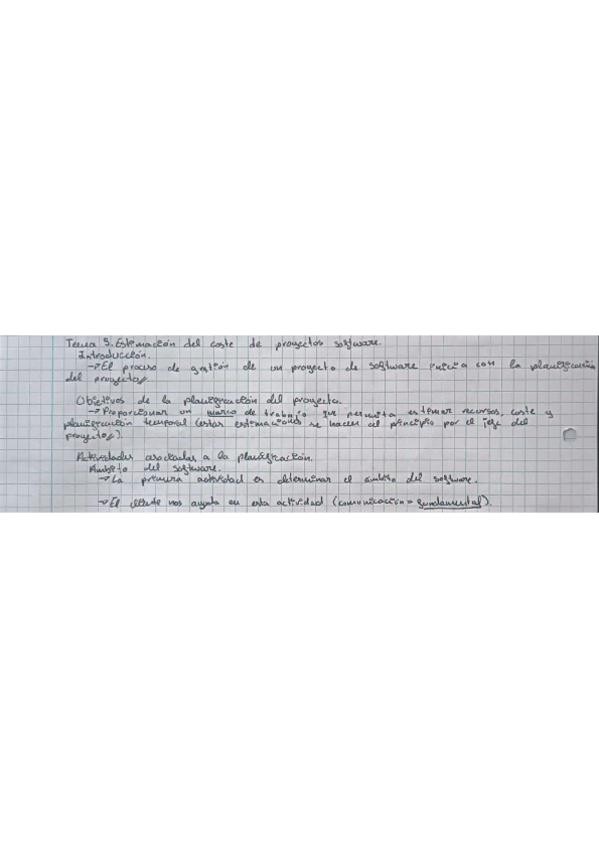 Tema 5. Estimación del coste de proyectos software.
Introducción.
→ El proceso de gestión de un proyecto de software inicia con la planificación
del proyecto.
Objetivos de la planificación del proyecto.
→ Proporcionar un marco de trabajo que permita estimar recursos, coste y
planificación temporal (estas estimaciones se hacen al principio por el jefe del
proyecto).
Actividades asociadas a la planificación.
Ámbito del software.
→ La primera actividad es determinar el ámbito del software.
→ El cliente nos ayuda en esta actividad (comunicación = fundamental).